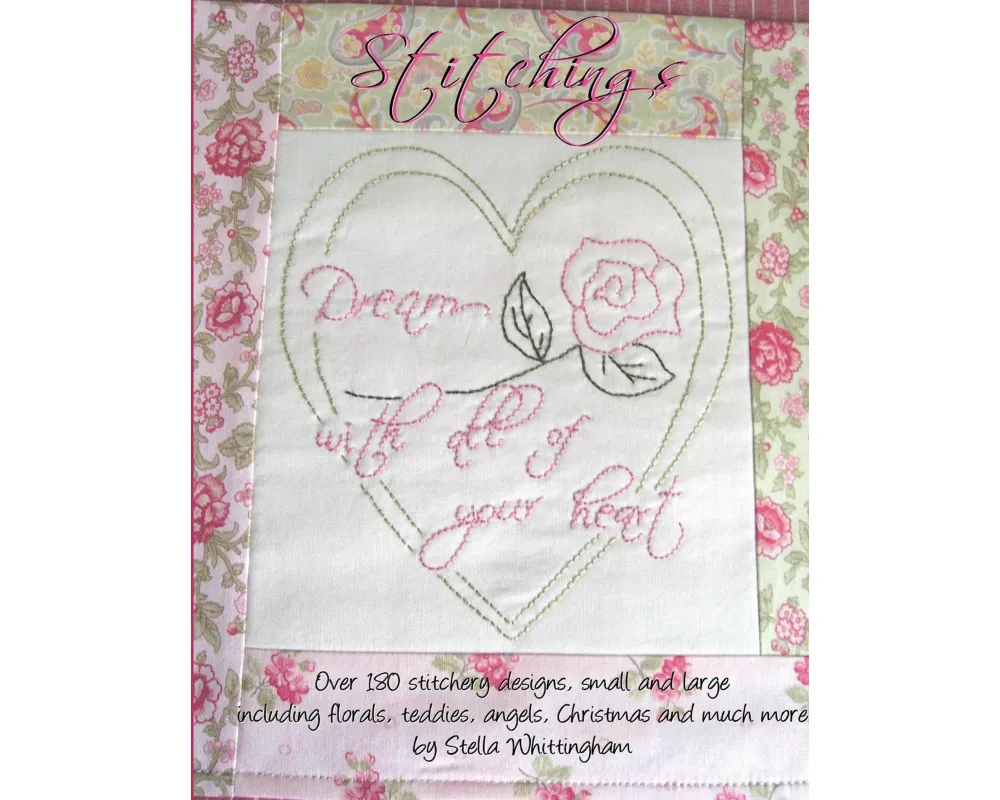 Stitchings
Dream
with all of
your heart
Over 180 stitchery designs, small and large
including florals, teddies, angels, Christmas and much more
by Stella Whittingham